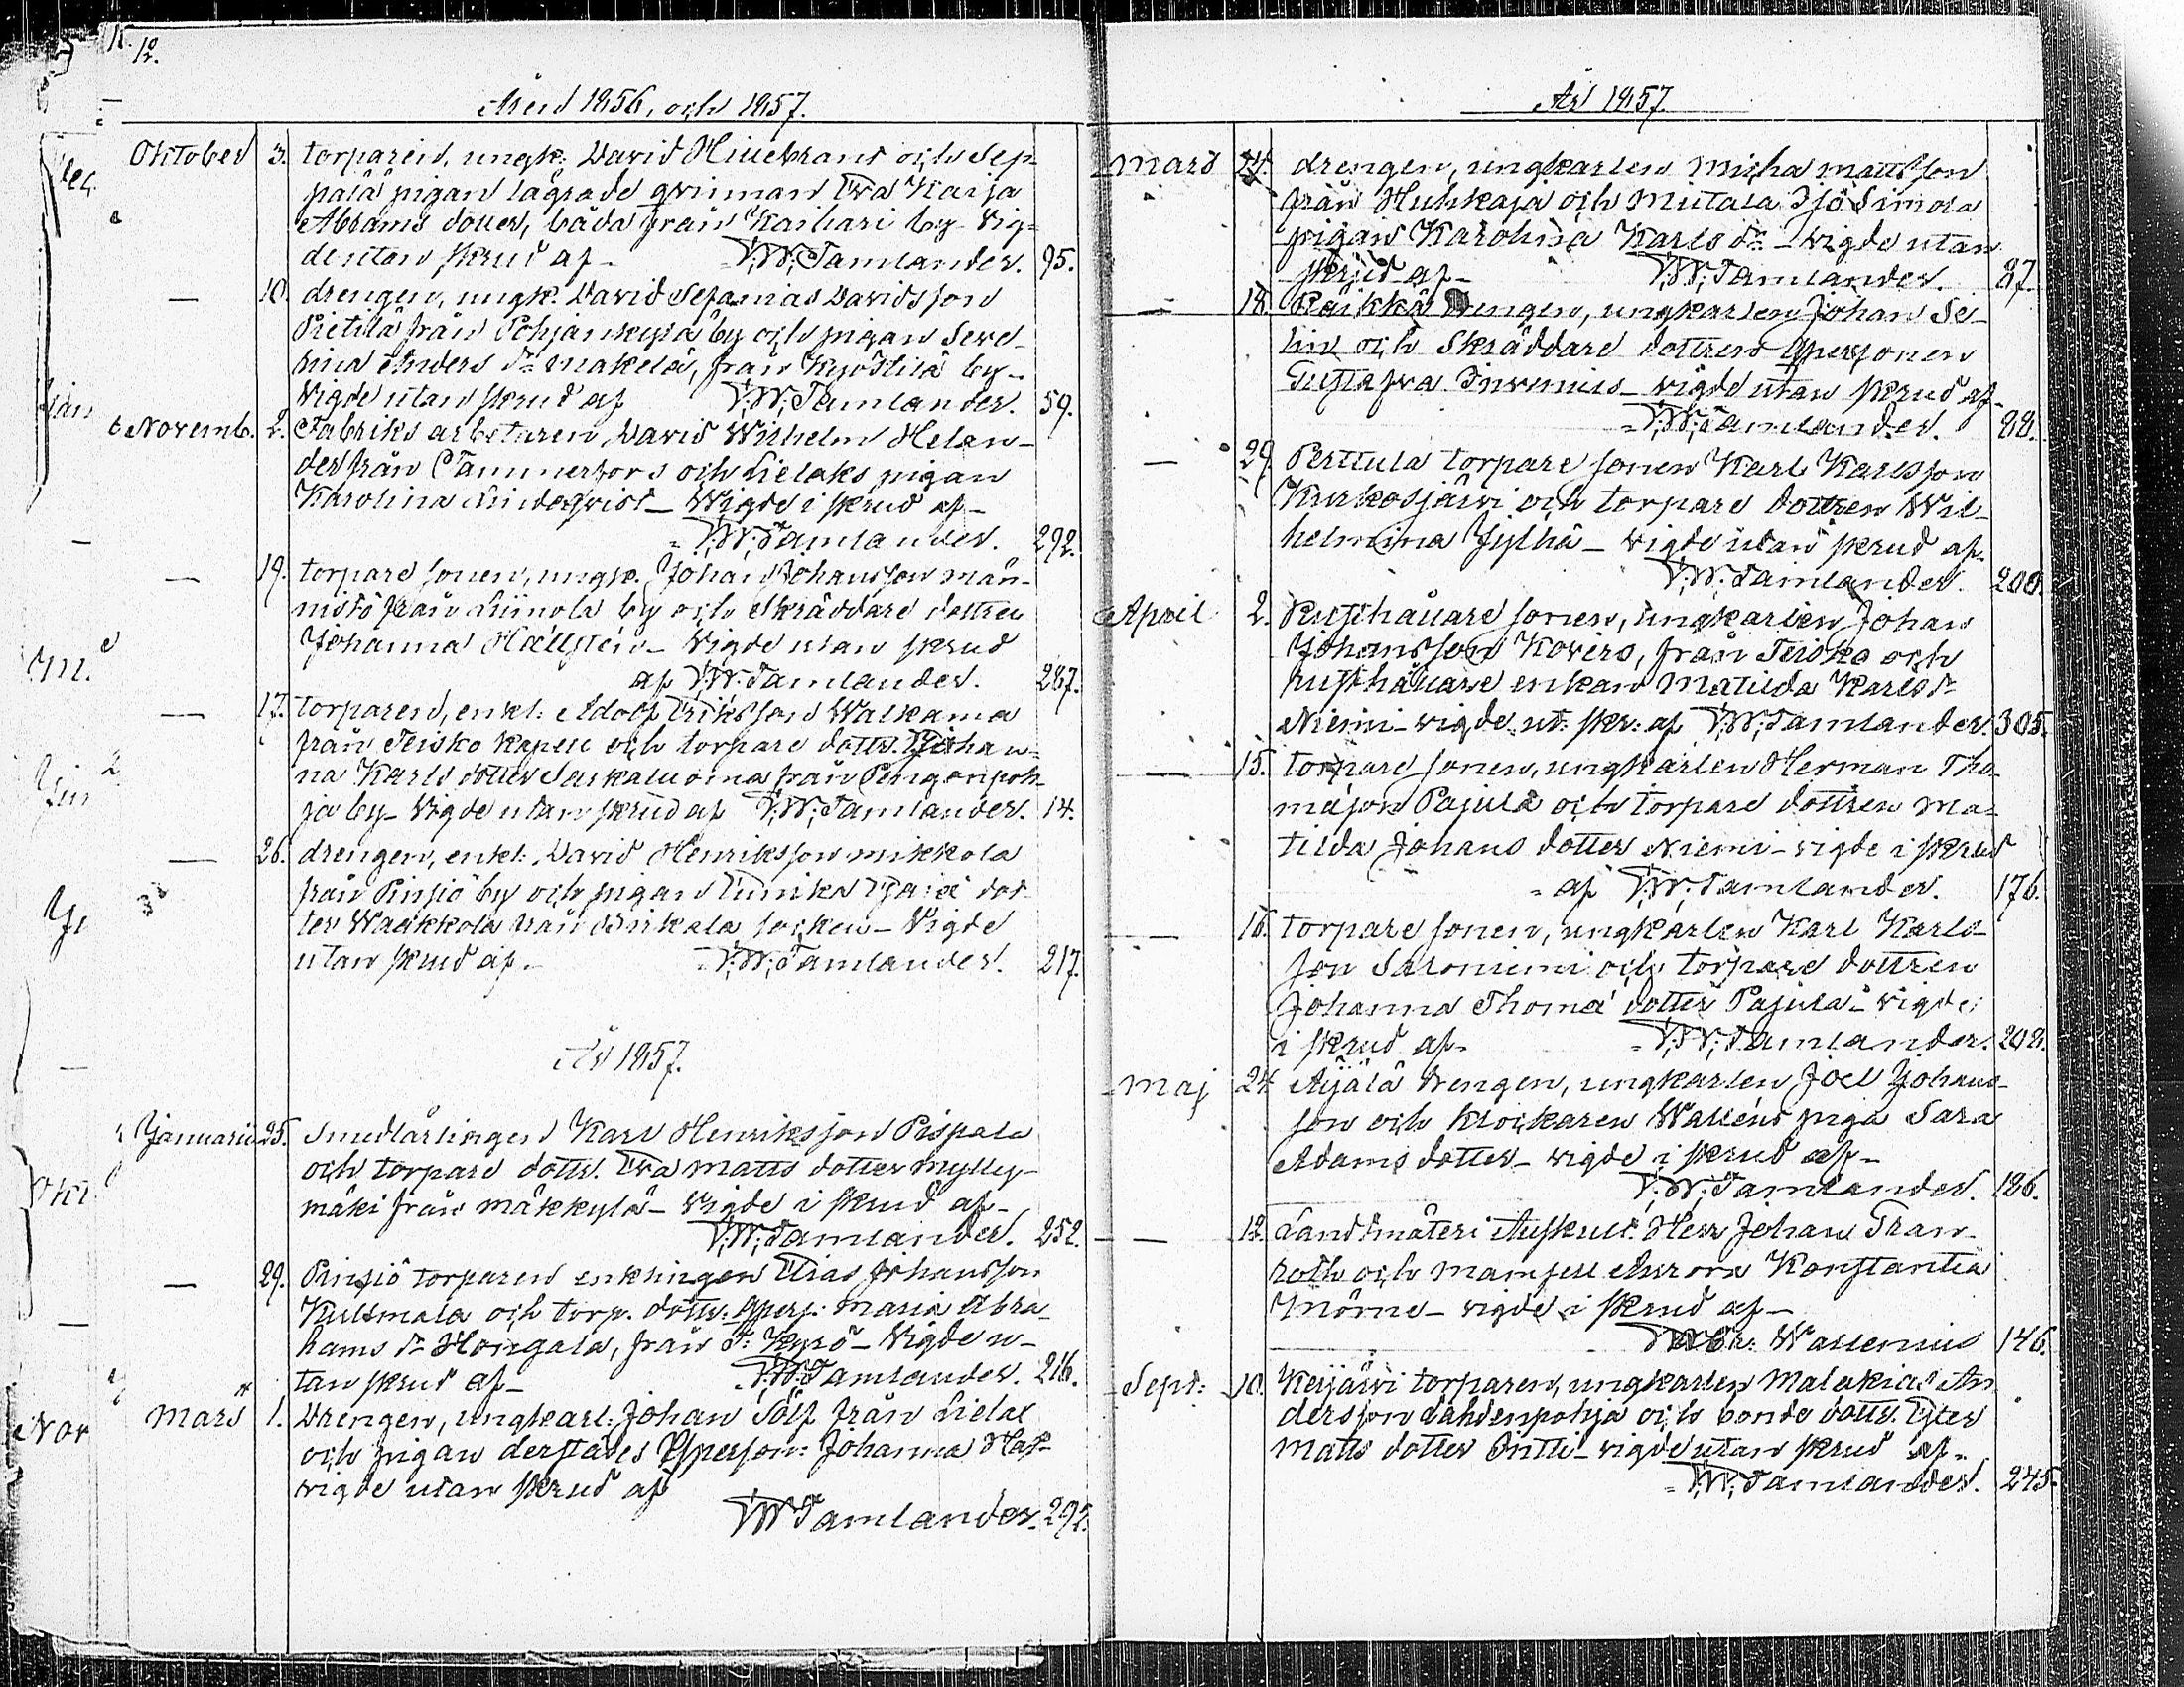 12.
Åren 1856, och 1857.
Oktober 3. torparen, ungk: David Hillebrand och Sep-
pälä pigan lägrade qvinnan Eva Kaisa
Abrams dotter, båda från Kaihari by Vig-
de utan skrud af V:W:Tamlander. 95.
— 10. drengen, ungk. David Sefanias Davidsson
Pietilä från Pohjankylä by och pigan Seve-
rina Anders dr Mäkelä, från Kyöstilä by-
Vigde utan skrud af V:W:Tamlander. 59.
Novemb. 2. Fabriks arbetaren, David Wilhelm Helan-
der från Tammerfors och Lielaks pigan
Karolina Lindeqvist_ Vigde i skrud af_
V:W:Tamlander. 292.
— 19. torpare sonen, ungk. Johan Johansson Män-
nistö från Liinola by och Skräddare dottren
Johanna Hällstén_ Vigde utan skrud
af V:W:Tamlander. 287.
— 17. torparen, enkl: Adolf Eriksson Walkama
från Teisko kapell och torpare dottr. Johan-
na Karls dotter Sarkaluoma från Pengonpoh-
ja by_ Vigde utan skrud af V:W:Tamlander. 14.
— 26. drengen, enkl: David Henriksson Mikkola
från Pinsiö by och pigan Ulrika dot-
ter Wackkola från Birkala socken_ Vigde
utan skrud af_ V:W:Tamlander. 217.
År 1857.
Januarii 25. Smedlärlingen Karl Henriksson Pispala
och torpare dottr. Eva Matts dotter Mylly-
mäki från Mäkkylä_ Vigde i skrud af_
V:W:Tamlander. 252.
— 29. Pinsiö torparen enklingen Elias Johansson
Kulmala och torp. dottr: qpers: Maria Abra
hams dr Hongala, från Kyrö_ Vigde u-
tan skrud af_ V:W:Tamlander. 216.
Mars 1. Drengen, ungkarl: Johan Sölf från Lielax
och pigan derstädes qperson: Johanna
vigde utan skrud af
VWTamlander. 292.
År 1857.
Mars drengen, ungkarlen Micha Mattsson
från Huhkaja och Mutala Isosimola
pigan Karolina Karls dr _ vigde utan
skrud af_ V:W:Tamlander. 87.
— 18. Räikkä Drengen, ungkarlen Johan Se-
lin och Skräddare dottren qpersonen
Gustafva Invenius_ vigde utan skrud af_
V:W:Tamlander. 88.
— 29. Perttula torpare sonen Karl Karlsson
Kurkosjärvi och torpare dottren Wil-
helmina Jylhä_ vigde utan skrud af_
V:W:Tamlander. 200.
April 2. Rusthållare sonen, ungkarlen Johan
Johansson Kovero, från Teisko och
rusthållare enkan Matilda Karls dr
Niemi_ vigde ut: skr: af V:W:Tamlander. 305.
— 15. torpare sonen, ungkarlen Herman Tho-
masson Pajula och torpare dottren Ma-
tilda Johans dotter Niemi_ vigde i skrud
af V:W:Tamlander. 176.
— 16. torpare sonen, ungkarlen Karl Karls-
son Saloniemi och torpare dottren
Johanna Thomæ dotter Pajula_ vigde
i skrud af_ V:W:Tamlander. 208.
Maj 24. Äijälä Drengen, ungkarlen Joel Johans-
son och Klockaren Walléns piga Sara
Adams dotter_ vigde i skrud af_
V:W:Tamlander. 186.
— 12. Landtmäteri Auskult. Herr Johan Tran-
roth och Mamsell Aurora Konstantia
Mörne_ vigde i skrud af_
Wallenius 146.
Sept: 10. Keijärvi torparen, ungkarlen Malakias An
dersson Lahdenpohja och bonde dottr. Ester
Matts dotter Intti_ vigde utan skrud af_
V:W:Tamlander. 245.